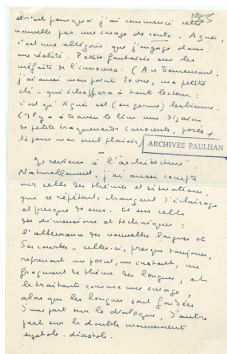 c'est pourquoi j'ai commencé cette
nouvelle par une image de conte. Agnès,
c'est une allégorie que j'engage dans
ma réalité. Petite fantaisie sur les
méfaits de l'innocence. (Au demeurant,
j'ai aussi mon point de vue, ma petite
clé - qui échappera à tout lecteur :
c'est qu'Agnès est (en germe) lesbienne.
ARCHIVES PAULHAN
Je reviens à l'"architecture".
Naturellement, j'ai aussi compté
sur celle des thèmes et situations
qui se répètent, changent d'éclairage
et presque de sens. Et sur celle
des dimensions et technique :
l'alternance des nouvelles longues et
des courtes - celles-ci, presque toujours,
reprenant un point, un instant, un
fragment de thème des longues, et
le traitant comme une image,
alors que les longues sont fondées
d'une part sur le dialogue, d'autre
part sur le double mouvement
systole-diastole.